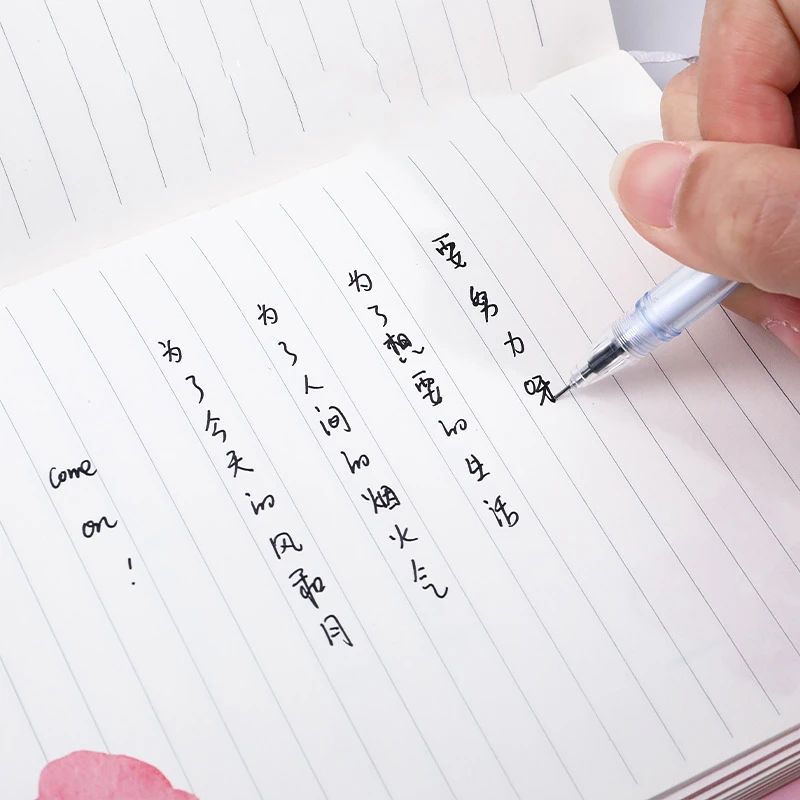 要努力呀
为了想要的生活
为了人间的烟火气
为了今天的风和月
Come on !